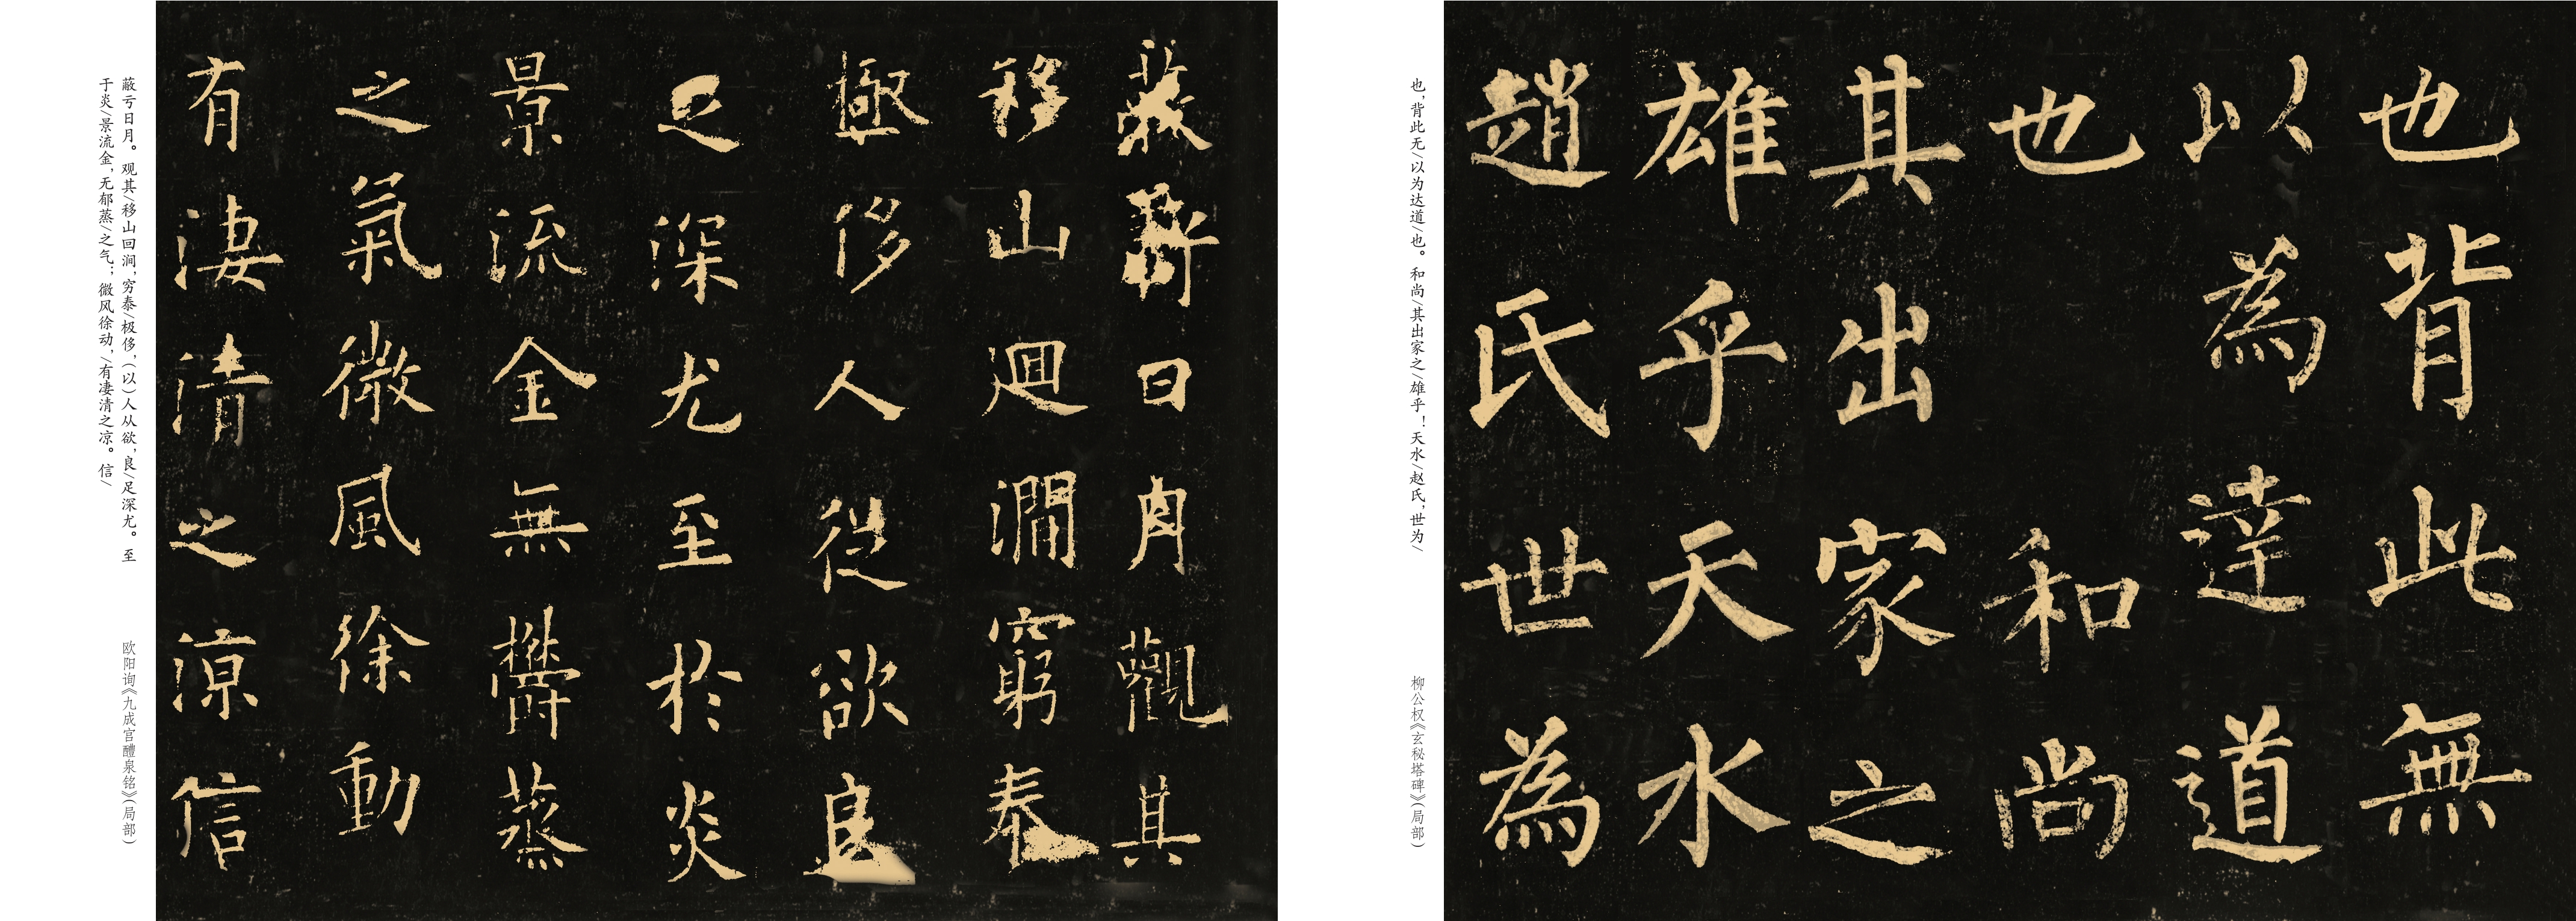 也背此無
以為達道
也和尚
其出家之
雄乎天水
趙氏世為
也，背此无/以为达道/也。和尚/其出家之/雄乎！天水/赵氏，世为/
柳公权《玄秘塔碑》(局部)
蔽虧日月觀其
移山迴澗窮泰
極侈人從欲良
足深尤至於炎
景流金無鬱蒸
之氣微風徐動
有淒清之涼信
蔽亏日月。观其/移山回涧，穷泰/极侈，(以)人从欲，良/足深尤。至
于炎/景流金，无郁蒸/之气；微风徐动，/有凄清之凉。信/
欧阳询《九成宫醴泉铭》(局部)